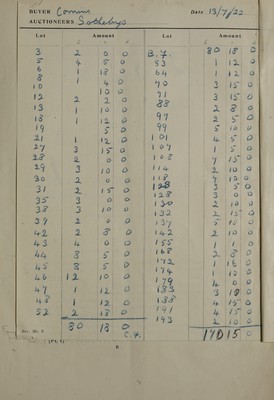 BUYER Comins Date 13/7/22
AUCTIONEERS Sothebys
Lot Amount Lot Amount
3 2 0 0 B.F. 80 18 0
5 4 5 0 53 1 12 0
6 1 18 0 64 1 12 0
8 1 4 0 70 3 15 0
10 10 0 71 3 15 0
12 2 2 0 88 2 8 0
13 1 10 0 97 2 5 0
18 1 12 0 99 5 10 0
19 5 0 101 4 5 0
21 1 12 0 107 1 5 0
27 3 15 0 108 7 15 0
28 2 0 0 114 2 10 0
29 3 10 0 118
30 2 0 0 3 5 0
31 2 15 0 128 3 0 0
35 3 0 0 130 2 10 0
38 3 10 0 132 2 15 0
39 2 0 0 137 5 10 0
42 2 8 0 142 2 10 0
43 4 0 0 155 1 1 0
44 8 5 0 168 2 8 0
45 8 5 0 172 1 0
46 12 10 0 174 1 12 0
47 1 12 0 179 4 0 0
48 1 12 0 183 3 18 0
52 2 18 0 188 4 15 0
80 18 0 191 4 15 0
C.F. 193 2 10 0
15 0